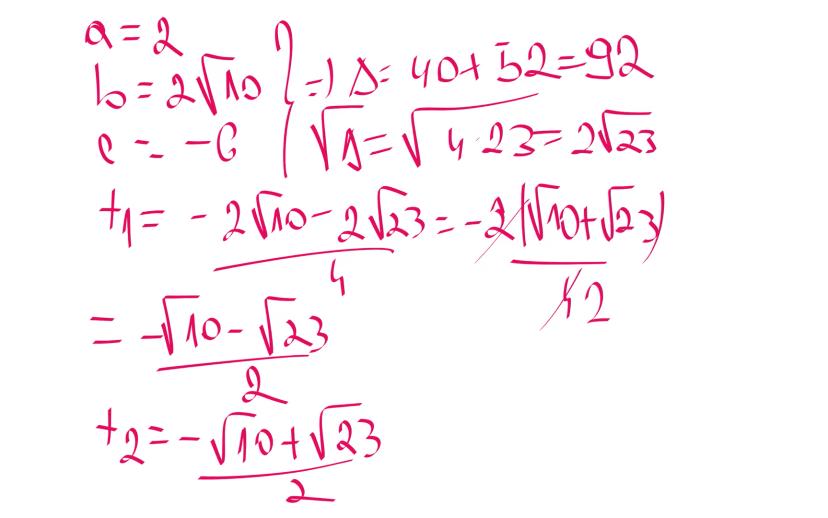 a = 2
b = 2√10 } => Δ = 40 + 52 = 92
c = -6 √Δ = √4·23 = 2√23
t₁ = -2√10 - 2√23 / 4 = -2(√10 + √23) / 4 2
= -√10 - √23 / 2
t₂ = -√10 + √23 / 2